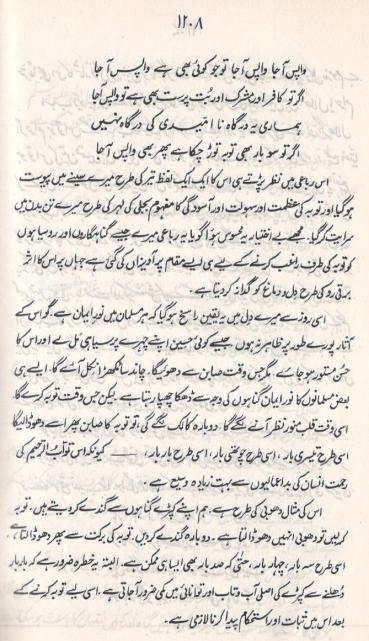 ۱۲۰۸
واپس آجا واپس آجا تو جو کوئی بھی ہے واپس آجا
اگر تو کافر اور مشرک اور بُت پرست بھی ہے تو واپس آجا
ہماری یہ درگاہ نا امیدی کی درگاہ نہیں
اگر تو سو بار بھی توبہ توڑ چکا ہے پھر بھی واپس آجا
اس رباعی میں نظر پڑتے ہی اس کا ایک ایک لفظ تیر کی طرح میرے سینے میں پیوست
ہو گیا اور توبہ کی عظمت اور سہولت اور آسودگی کا مفہوم بجلی کی لہر کی طرح میرے تن بدن میں
سرایت کر گیا۔ مجھے بے اختیار یہ محسوس ہوا گویا یہ رباعی میرے جیسے گناہگاروں اور روسیاہوں
کو توبہ کی طرف راغب کرنے کے لیے ہی ایسے مقام پر آویزاں کی گئی ہے جہاں پر اس کا اثر
برقی رو کی طرح دل و دماغ کو گرما نہ کر دیتا ہے۔
اسی روز سے میرے دل میں یہ یقین راسخ ہو گیا کہ ہر مسلمان میں نورِ ایمان ہے۔ گو اس کے
آثار پورے طور پر ظاہر نہ ہوں جیسے کوئی حسین اپنے چہرے پر سیاہی مل لے اور اس کا
حسن مستور ہو جائے مگر جس وقت صابن سے دھوئے گا۔ چاند سا نکھرا نکل آئے گا۔ ایسے ہی
بعض مسلمانوں کا نورِ ایمان گناہوں کی وجہ سے ڈھکا چھپا رہتا ہے۔ لیکن جس وقت توبہ کرے گا،
اسی وقت قلب منور نظر آنے لگے گا۔ دوبارہ کالک لگے گی، تو توبہ کا صابن پھر اسے دھو ڈالے گا
اسی طرح تیسری بار، اسی طرح چوتھی بار، اسی طرح بار بار، ــــــ کیونکہ اس توّاب الرّحیم کی
رحمت انسان کی بداعمالیوں سے بہت زیادہ وسیع ہے۔
اس کی مثال دھوبی کی طرح ہے۔ ہم اپنے کپڑے گناہوں سے گندے کر دیتے ہیں۔ توبہ
کر لیں تو دھوبی انہیں دھو ڈالتا ہے۔ دوبارہ گندے کر دیں۔ توبہ کی برکت سے پھر دھو ڈالتا ہے
اسی طرح سہ بار، چہار بار، حتیٰ کہ صد بار بھی ایسا ہی ممکن ہے۔ البتہ یہ خطرہ ضرور ہے کہ بار بار
دُھلنے سے کپڑے کی اصلی آب و تاب اور توانائی میں کمی ضرور آ جاتی ہے، اسی لیے توبہ کرنے کے
بعد اس میں ثبات اور استحکام پیدا کرنا لازمی ہے۔